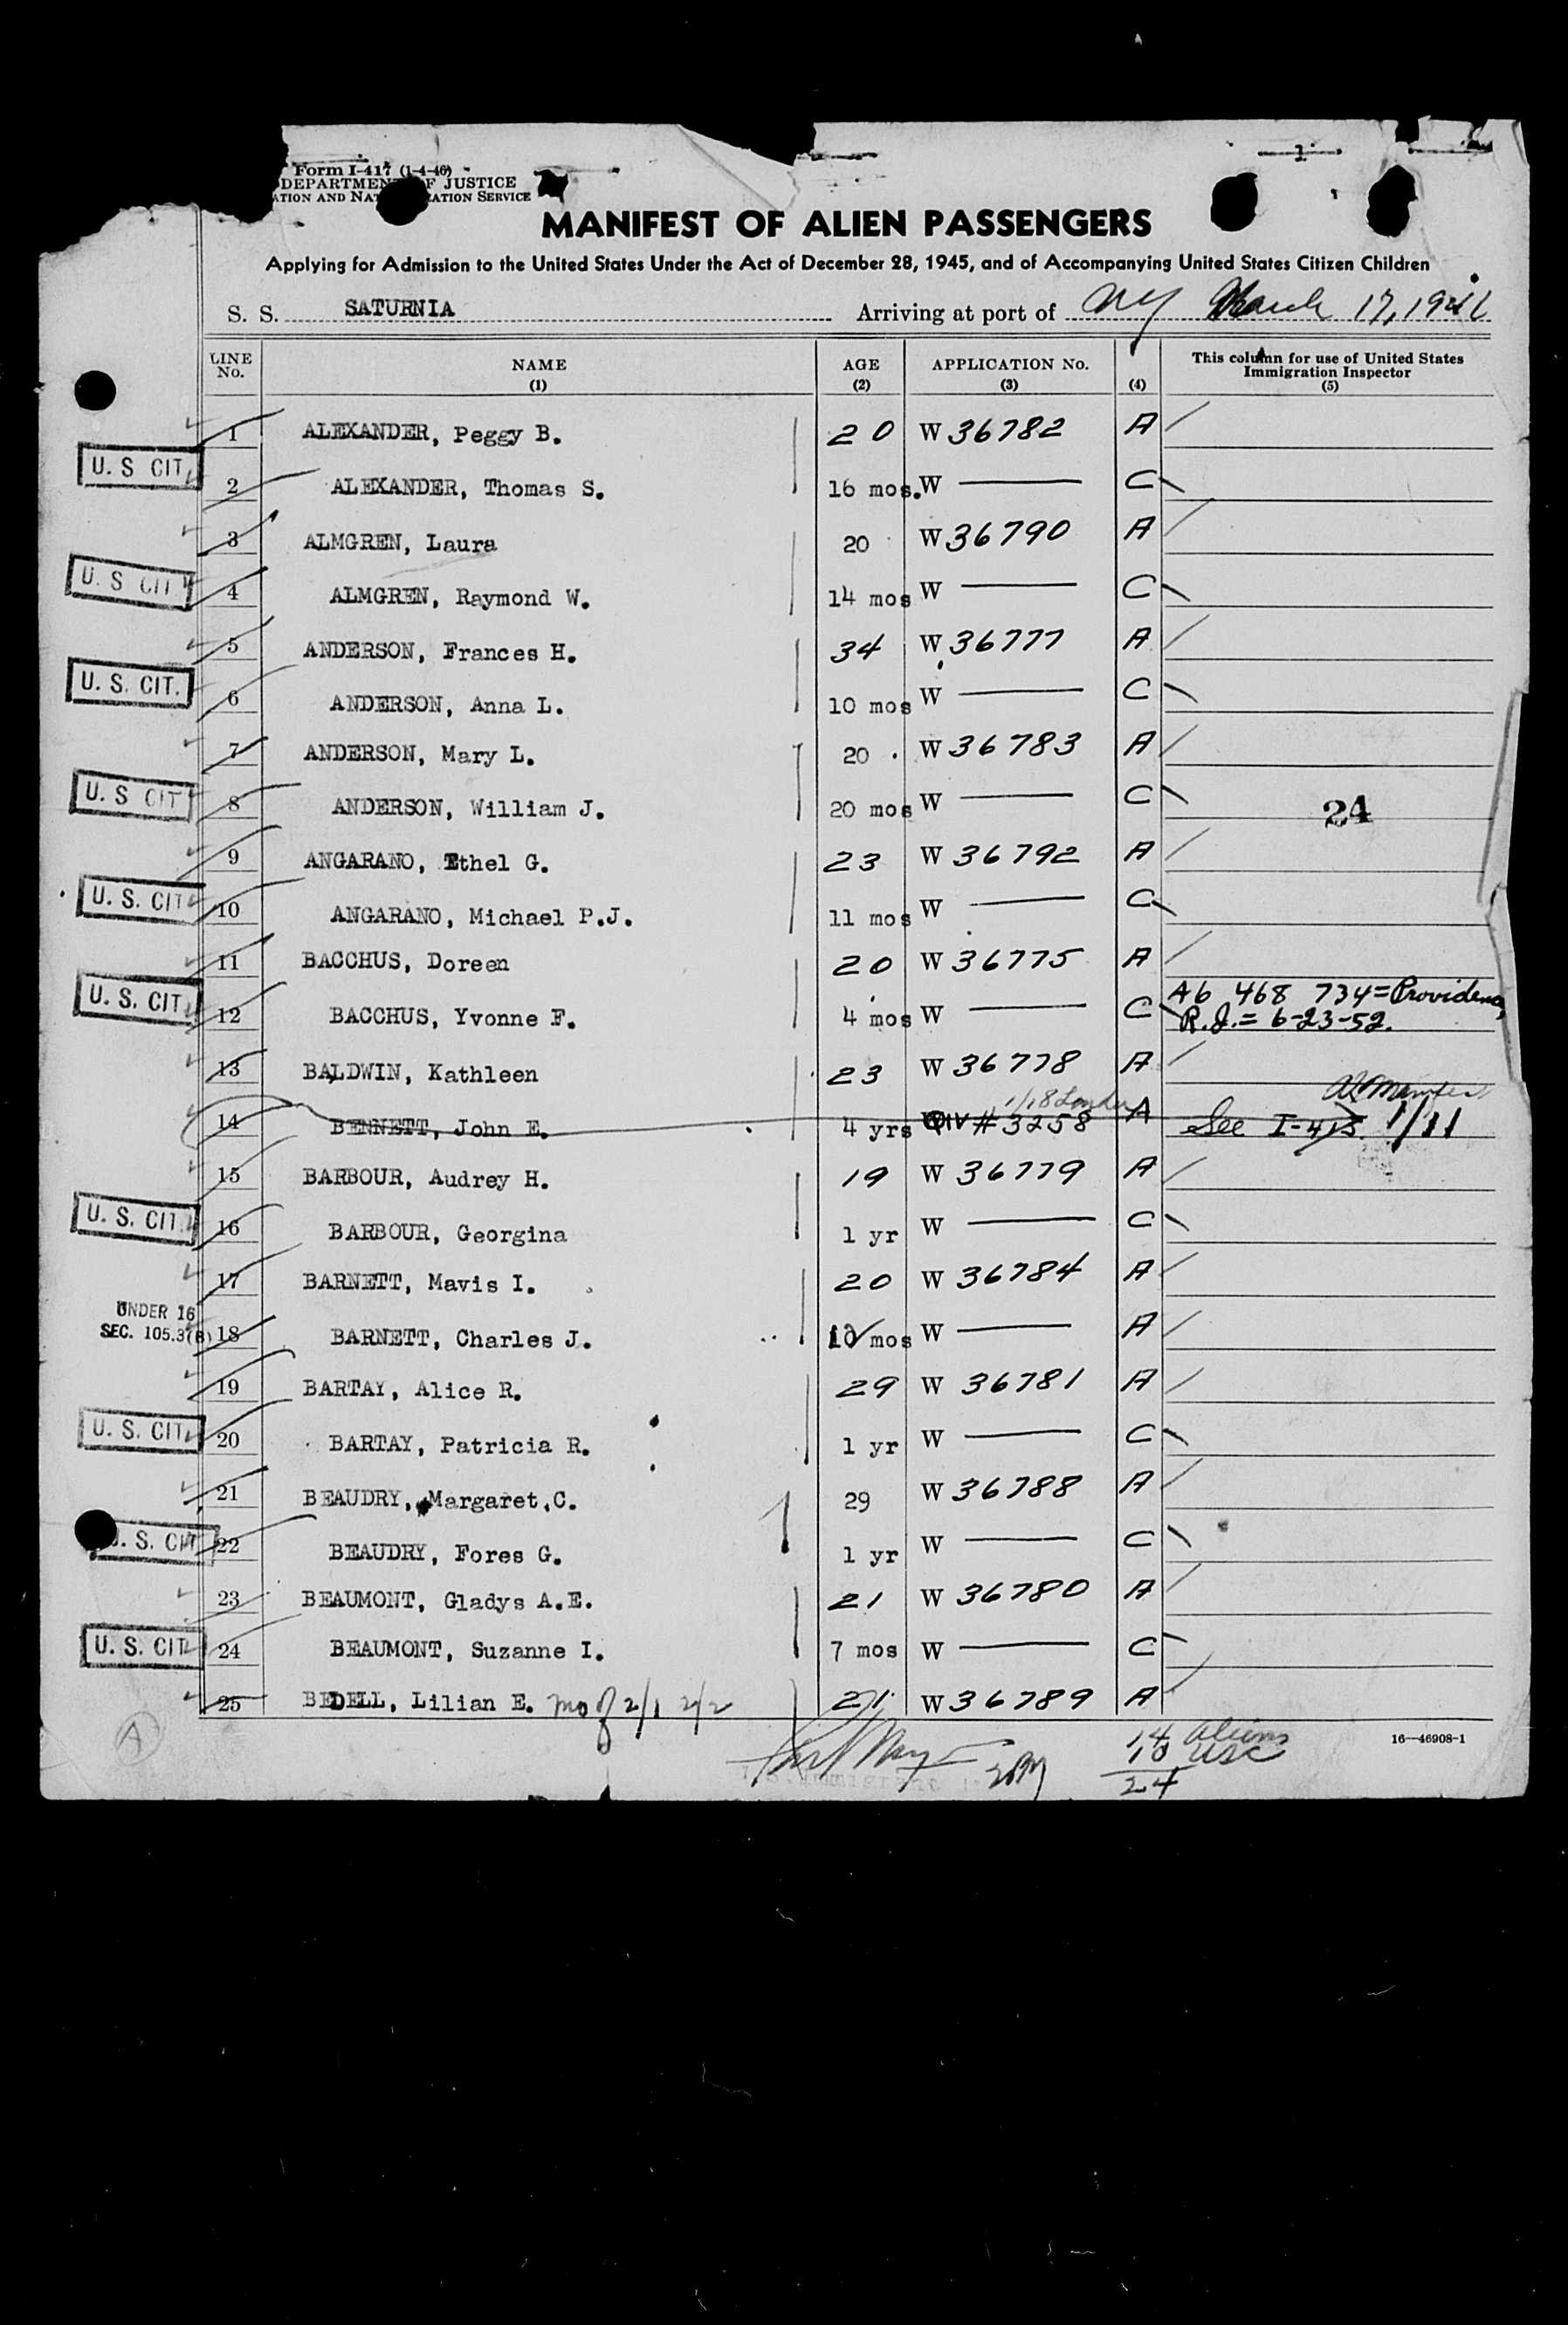 Form I-417 (1-4-46)
DEPARTMENT OF JUSTICE
ATION AND NAT ATION SERVICE
MANIFEST OF ALIEN PASSENGERS
Applying for Admission to the United States Under the Act of December 28, 1945, and of Accompanying United States Citizen Children
S. S. SATURNIA Arriving at port of NY March 17, 1946
LINE No. NAME (1) AGE (2) APPLICATION No. (3) (4) This column for use of United States Immigration Inspector (5)
1 ALEXANDER, Peggy B. 20 W 36782 A
U. S CIT 2 ALEXANDER, Thomas S. 16 mos. W — C
3 ALMGREN, Laura 20 W 36790 A
U. S CIT 4 ALMGREN, Raymond W. 14 mos W — C
5 ANDERSON, Frances H. 34 W 36777 A
U. S. CIT. 6 ANDERSON, Anna L. 10 mos W — C
7 ANDERSON, Mary L. 20 W 36783 A
U. S CIT 8 ANDERSON, William J. 20 mos W — C 24
9 ANGARANO, Ethel G. 23 W 36792 A
U. S. CIT 10 ANGARANO, Michael P.J. 11 mos W — C
11 BACCHUS, Doreen 20 W 36775 A
U. S. CIT. 12 BACCHUS, Yvonne F. 4 mos W — C A6 468 734 = Providence,
R.I. = 6-23-52.
13 BALDWIN, Kathleen 23 W 36778 A
1/18 London
14 BENNETT, John E. 4 yrs QIV # 3258 A See I-415. 1/11
15 BARBOUR, Audrey H. 19 W 36779 A
U. S. CIT. 16 BARBOUR, Georgina 1 yr W — C
17 BARNETT, Mavis I. 20 W 36784 A
UNDER 16
SEC. 105.3(B) 18 BARNETT, Charles J. 10 mos W — A
19 BARTAY, Alice R. 29 W 36781 A
U. S. CIT. 20 BARTAY, Patricia R. 1 yr W — C
21 BEAUDRY, Margaret C. 29 W 36788 A
U. S. CIT 22 BEAUDRY, Fores G. 1 yr W — C
23 BEAUMONT, Gladys A.E. 21 W 36780 A
U. S. CIT 24 BEAUMONT, Suzanne I. 7 mos W — C
25 BEDELL, Lilian E. mo of 2/1 2/2 21 W 36789 A
A
14 aliens
10 USC
24
16—46908-1